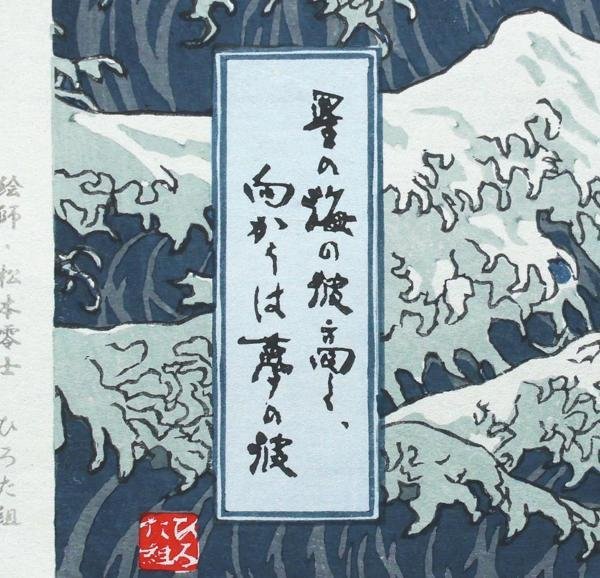 星の海の波高し、
向かうは夢の彼
絵師・松本零士 ひろた組
ひろた組